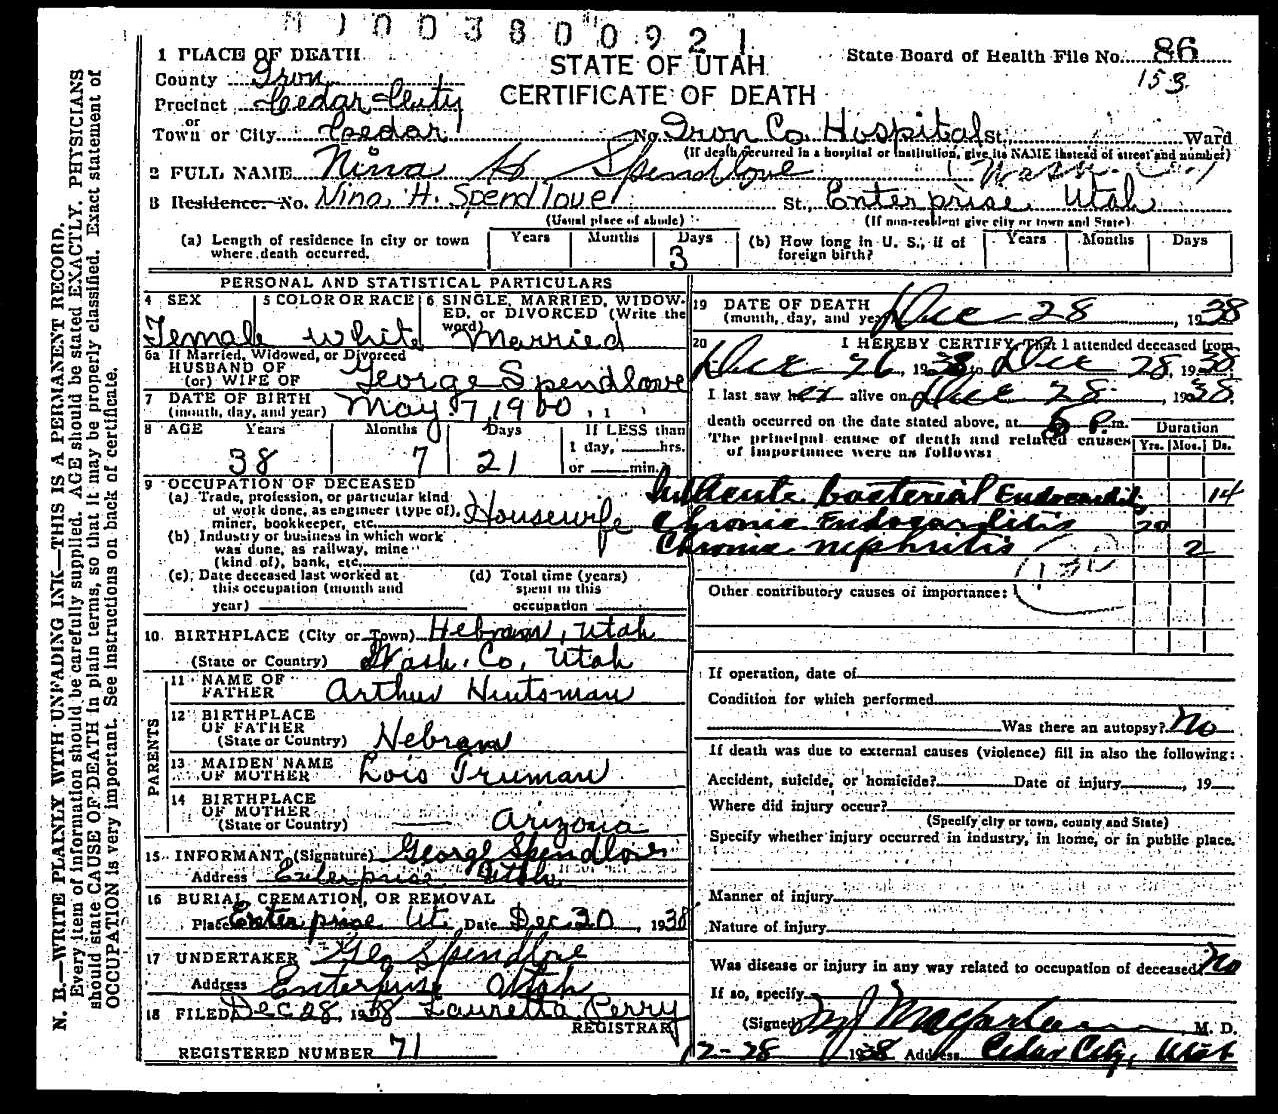 M 1003800921
1 PLACE OF DEATH
STATE OF UTAH
State Board of Health File No. 86
County Iron
153
Precinct Cedar City
CERTIFICATE OF DEATH
or
Town or City Cedar No. Iron Co. Hospital St., Ward
(If death occurred in a hospital or institution, give its NAME instead of street and number)
2 FULL NAME Nina H Spendlove
3 Residence. No. Nina H. Spendlove St., Enterprise, Utah
(Usual place of abode) (If non-resident give city or town and State)
(a) Length of residence in city or town where death occurred. Years Months Days 3
(b) How long in U. S., if of foreign birth? Years Months Days
PERSONAL AND STATISTICAL PARTICULARS
4 SEX 5 COLOR OR RACE 6 SINGLE, MARRIED, WIDOWED, or DIVORCED (Write the word)
Female White Married
6a If Married, Widowed, or Divorced
HUSBAND OF
(or) WIFE OF George Spendlove
7 DATE OF BIRTH
(month, day, and year) May 7, 1900
8 AGE Years Months Days If LESS than
1 day, hrs.
38 7 21 or min.
9 OCCUPATION OF DECEASED
(a) Trade, profession, or particular kind
of work done, as engineer (type of),
miner, bookkeeper, etc. Housewife
(b) Industry or business in which work
was done, as railway, mine
(kind of), bank, etc.
(c) Date deceased last worked at
this occupation (month and
year)
(d) Total time (years)
spent in this
occupation
10 BIRTHPLACE (City or Town) Hebron, Utah
(State or Country) Wash. Co, Utah
PARENTS
11 NAME OF
FATHER Arthur Huntsman
12 BIRTHPLACE
OF FATHER
(State or Country) Hebron
13 MAIDEN NAME
OF MOTHER Lois Truman
14 BIRTHPLACE
OF MOTHER
(State or Country) Arizona
15 INFORMANT (Signature) George Spendlove
Address Enterprise Utah
16 BURIAL, CREMATION, OR REMOVAL
Place Enterprise Ut. Date Dec 30, 1938
17 UNDERTAKER Geo Spendlove
Address Enterprise Utah
18 FILED Dec 28, 1938 Lauretta Perry
REGISTRAR
REGISTERED NUMBER 71
19 DATE OF DEATH
(month, day, and year) Dec 28, 1938
20 I HEREBY CERTIFY, That I attended deceased from
Dec 26, 1938 to Dec 28, 1938.
I last saw her alive on Dec 28, 1938.
death occurred on the date stated above, at 5 P.m.
The principal cause of death and related causes
of importance were as follows:
Duration
Yrs. Mos. Ds.
Subacute bacterial Endocarditis 14
Chronic Endocarditis 20
Chronic nephritis 2
Other contributory causes of importance:
If operation, date of
Condition for which performed
Was there an autopsy? No
If death was due to external causes (violence) fill in also the following:
Accident, suicide, or homicide? Date of injury , 19
Where did injury occur?
(Specify city or town, county and State)
Specify whether injury occurred in industry, in home, or in public place.
Manner of injury
Nature of injury
Was disease or injury in any way related to occupation of deceased No
If so, specify
(Signed) Macfarlane, M. D.
12-28 1938 Address Cedar City, Utah
N. B.—WRITE PLAINLY WITH UNFADING INK—THIS IS A PERMANENT RECORD.
Every item of information should be carefully supplied. AGE should be stated EXACTLY. PHYSICIANS
should state CAUSE OF DEATH in plain terms, so that it may be properly classified. Exact statement of
OCCUPATION is very important. See instructions on back of certificate.